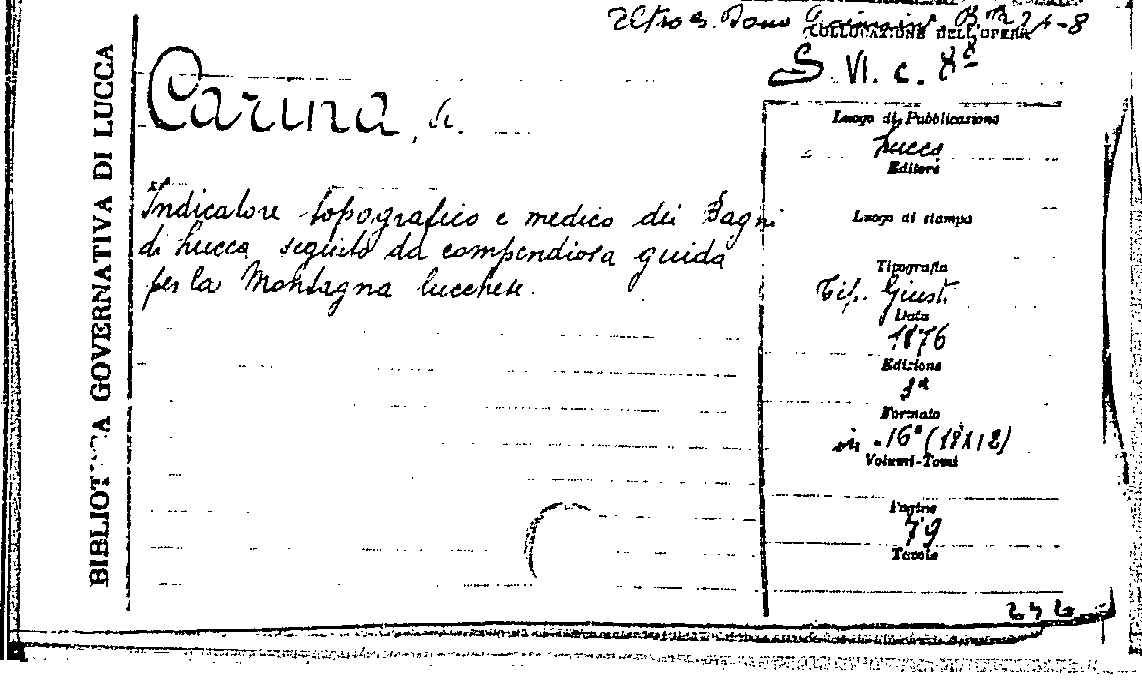 BIBLIOTECA GOVERNATIVA DI LUCCA
Altro es. Dono
COLLOCAZIONE DELL'OPERA
S. VI. c. 8
Carina,
Indicatore topografico e medico dei Bagni
di Lucca seguito da compendiosa guida
per la Montagna lucchese.
Luogo di Pubblicazione
Lucca
Editore
Luogo di stampa
Tipografia
Tip. Giusti
Data
1876
Edizione
Formato
in -16° (18X12)
Volumi-Tomi
Pagine
79
Tavole